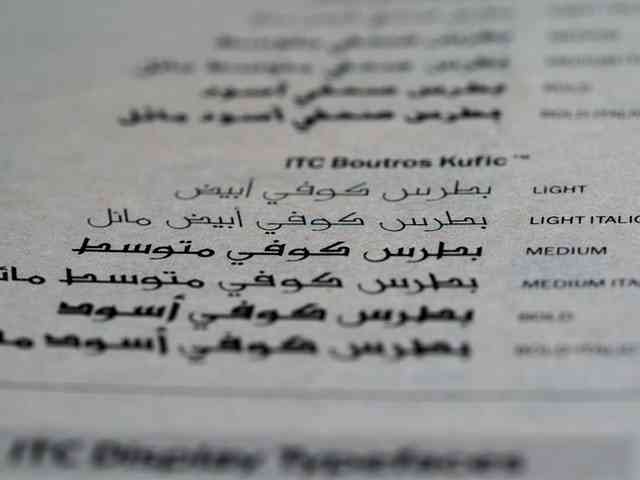 بطرس صحفي أسود BOLD
بطرس صحفي أسود مائل BOLD ITALIC
ITC Boutros Kufic™
بطرس كوفي أبيض LIGHT
بطرس كوفي أبيض مائل LIGHT ITALIC
بطرس كوفي متوسط MEDIUM
بطرس كوفي متوسط مائل MEDIUM ITA
بطرس كوفي أسود BOLD
بطرس كوفي أسود ما BOLD ITALIC
ITC Display Typefaces